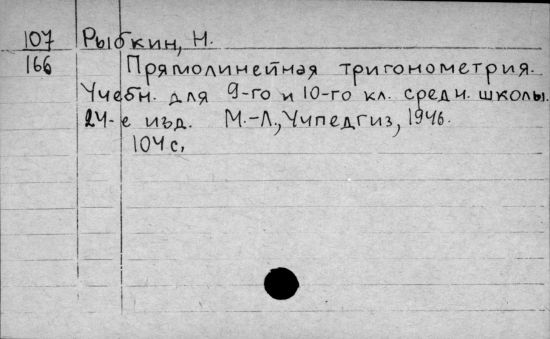 107 Рыбкин, Н.
166 Прямолинейная тригонометрия.
Учебн. для 9-го и 10-го кл. средн. школы.
24-е изд. М.-Л., Учпедгиз, 1946.
104 с.